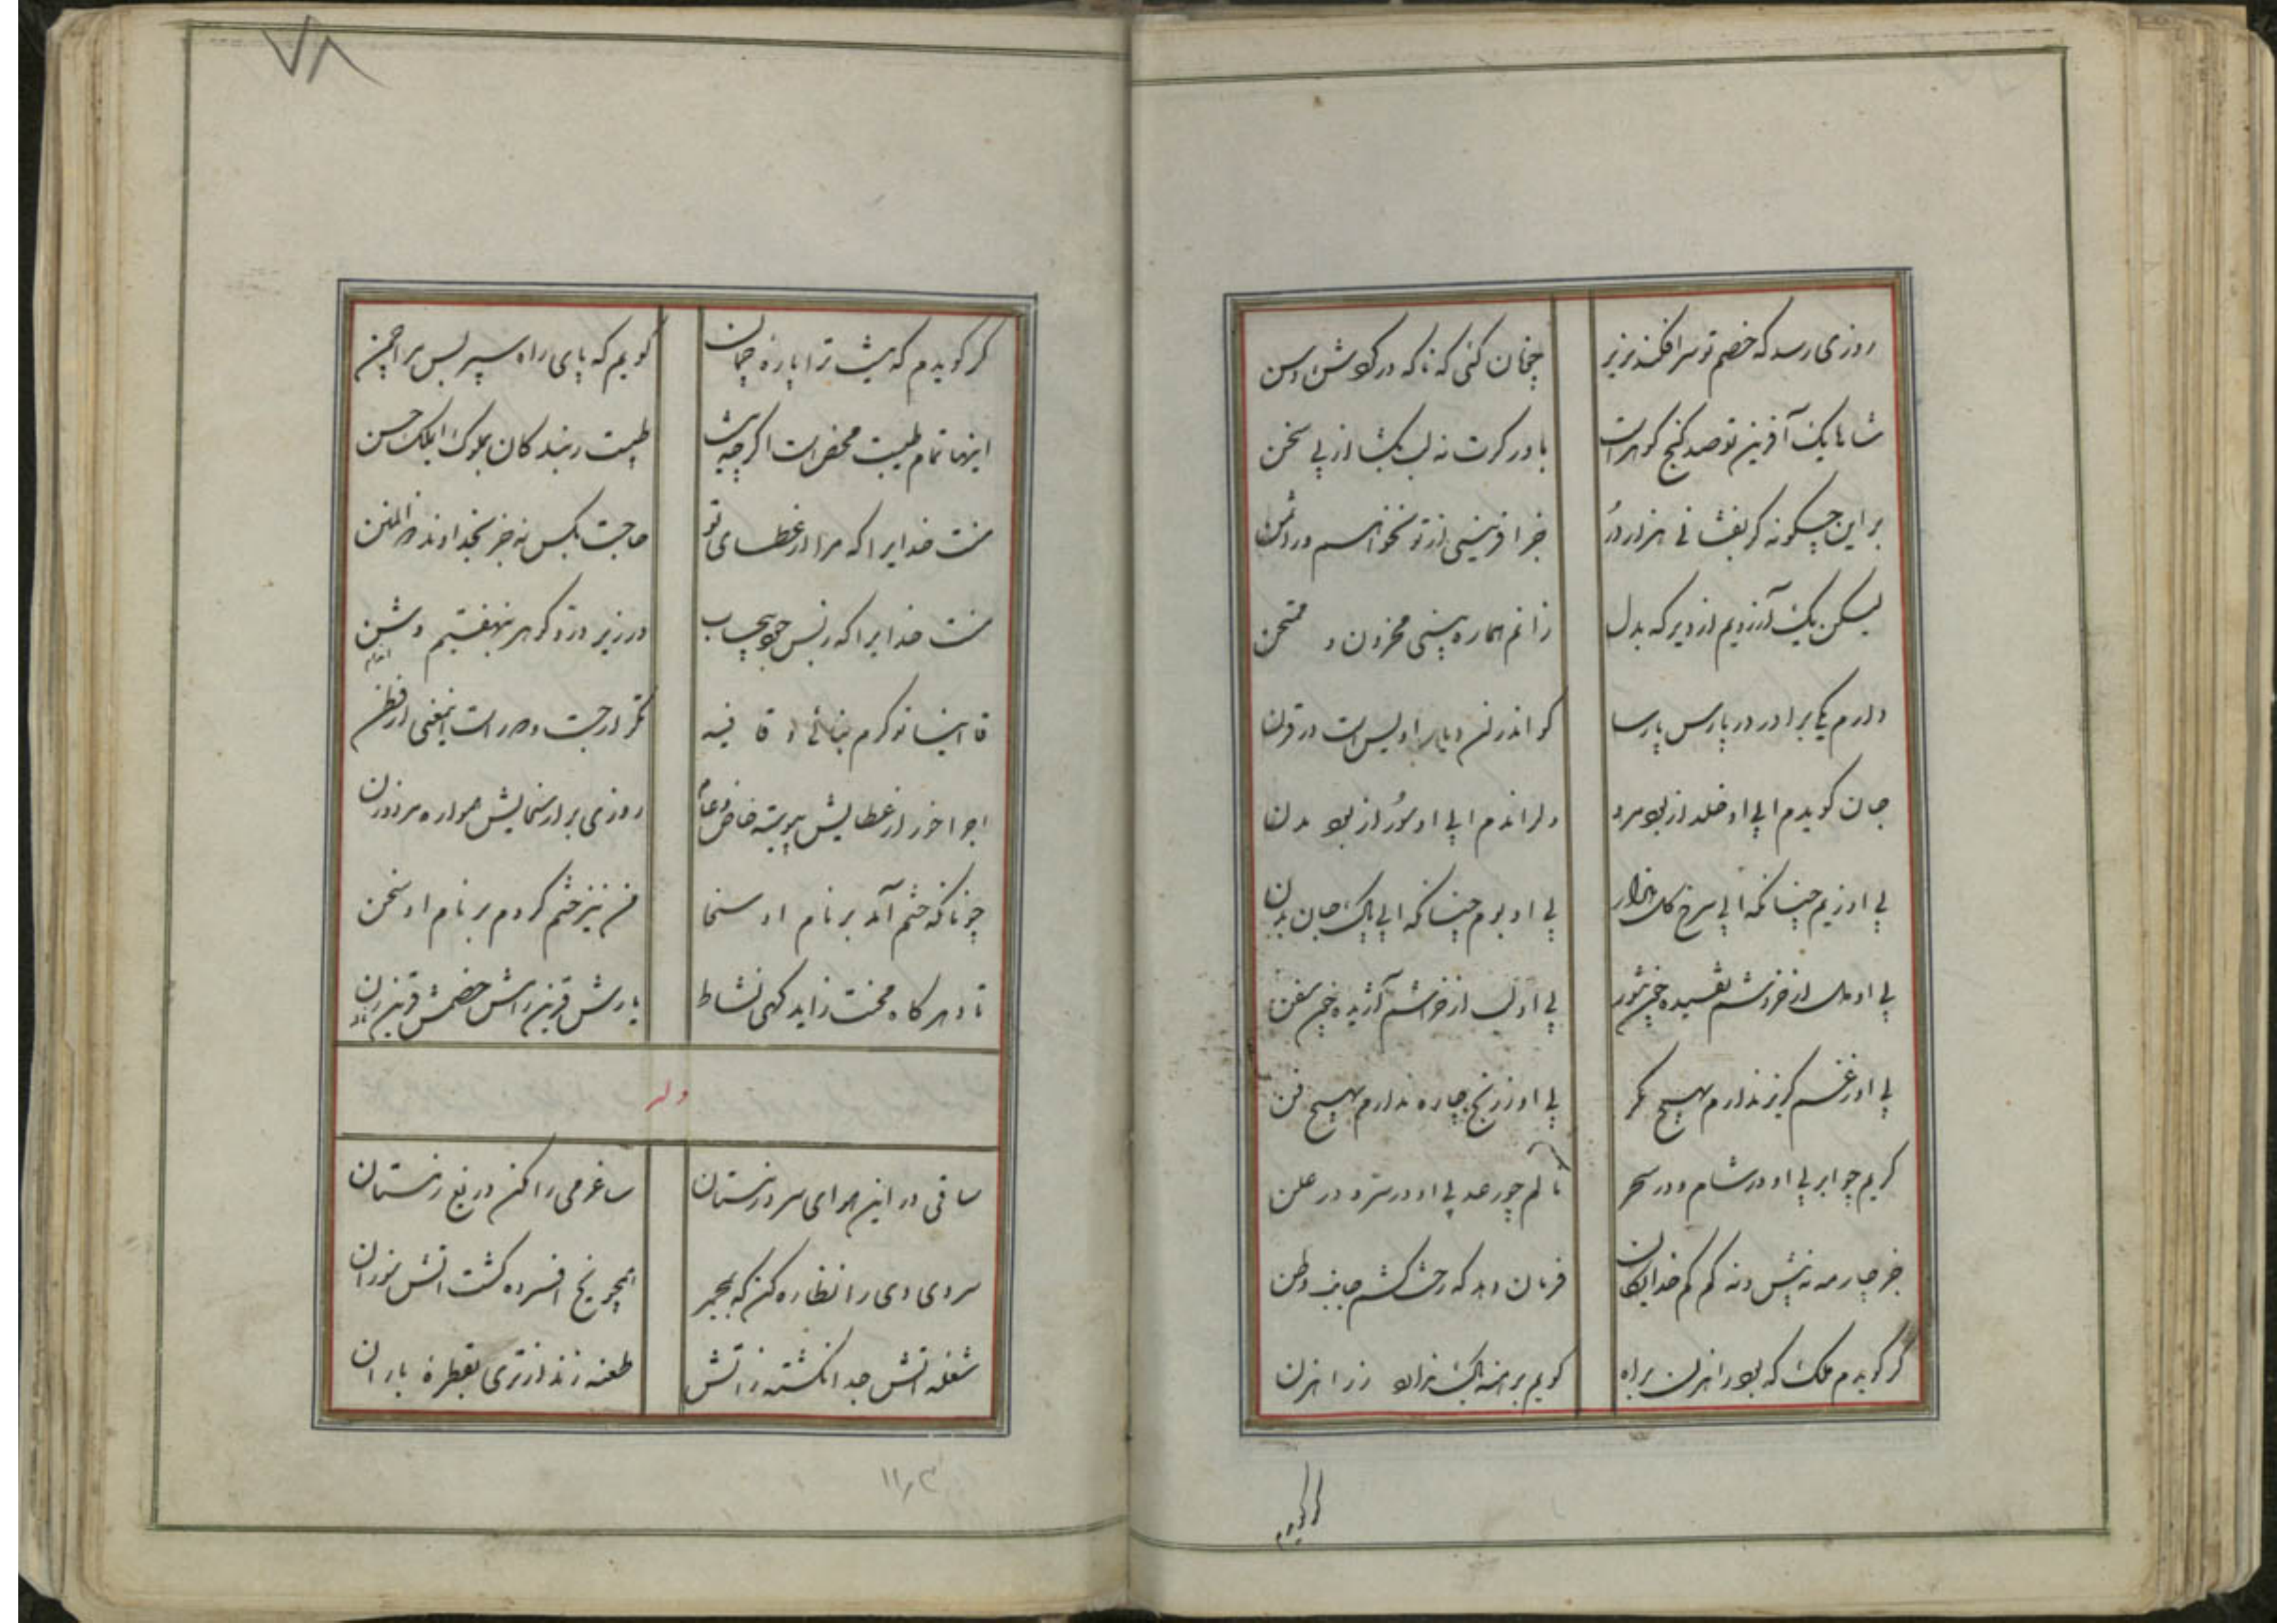 روزی رسد که خصم تو سر افکند بزیر
چنان کنی که ناکه در کردنش رسن
شاها یک آفرین تو صد گنج گوهر است
باور کرت نه لب بکشا از پی سخن
بر این چکونه کر بفشانی هزار در
جز آفرینی از تو نخواهم در ثمن
لیکن یک آرزویم از دیر که بدل
زانم هماره بینی محزون و ممتحن
دارم یکی برادر در پارس پارسا
کو اندر ان دیار اویس است در قرن
جان کویدم ابی او خلد از بود مرو
دل راندم ابی او سور از بود مدن
بی او زیم چنانکه ابی سرخ گل هزار
بی او بوم چنانکه ابی پاک جان بدن
بی او دل از خروشم تفسیده چون تنور
بی او لب از خراشم آژیده چون سفن
بی او ز غم کریز ندارم بهیچ مکر
بی او ز رنج چاره ندارم بهیچ فن
کریم چو ابر بی او در شام و در سحر
نالم چو رعد بی او در سر و در علن
جز چار مه نه بیش و نه کم کم خدایکان
فرمان دهد که رخت کشم جانب وطن
گر گویدم ملک که بود راهزن براه
کویم برهنه باک ندارد ز راهزن
گر گویدم
۷۸
کر کویدم که نیست ترا باره چمان
کویم که پای راه سپر بس مرا چمن
اینها تمام طیبت محض است اکرچه نیست
طیبت ز بندکان بملوک ای ملک حسن
منت خدایرا که مرا از عطای تو
حاجت بکس نه جز بخداوند ذو المنن
منت خدایرا که ز بس جود بیحساب
در زیر در و گوهر بنهفتیم وشن
قاآنیا ز کرم بنائی و قافیه
تکرار جست و هر راست اینمعنی از فطن
اجرا خور از عطایش پیوسته خاص و عام
روزی بر از سخایش همواره مرد و زن
چونانکه ختم آمد بر نام او سخا
من نیز ختم کردم بر نام او سخن
تا دهر کاه محنت زاید کهی نشاط
یارش قرین رامش خصمش قرین رن
وله
ساقی در این هوای سرد زمستان
ساغر می را مکن دریغ ز مستان
سردی دی را نظاره کن که بمجمر
همچو یخ افسرده گشت آتش سوزان
شعله آتش جدا نکشته ز آتش
طعنه زند از تری بقطره باران